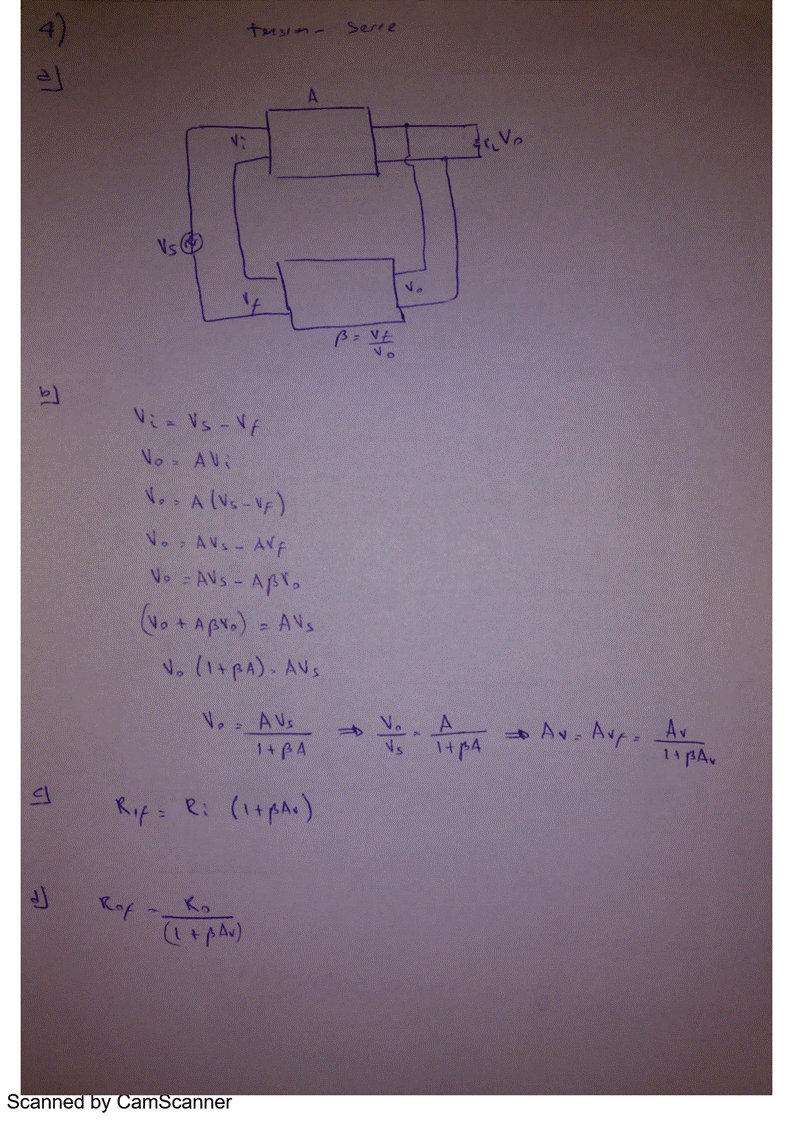 4) tension - Serie
a]
A
Vi
RL Vo
Vs
Vf
Vo
β = Vf/Vo
b]
Vi = Vs - Vf
Vo = AVi
Vo = A(Vs - Vf)
Vo = AVs - AVf
Vo = AVs - AβVo
(Vo + AβVo) = AVs
Vo (1+βA) = AVs
Vo = AVs/(1+βA) ⇒ Vo/Vs = A/(1+βA) ⇒ Av = Avf = Av/(1+βAv)
c] Rif = Ri (1+βAv)
d] Rof = Ro/(1+βAv)
Scanned by CamScanner